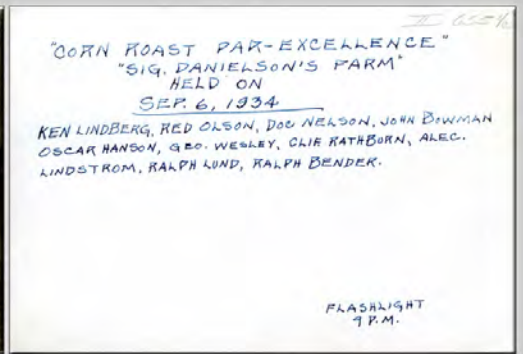 "CORN ROAST PAR-EXCELLENCE"
"SIG. DANIELSON'S FARM"
HELD ON
SEP. 6, 1934
KEN LINDBERG, RED OLSON, DOC NELSON, JOHN BOWMAN
OSCAR HANSON, GEO. WESLEY, CLIF RATHBURN, ALEC.
LINDSTROM, RALPH LUND, RALPH BENDER.
FLASHLIGHT
9 P.M.